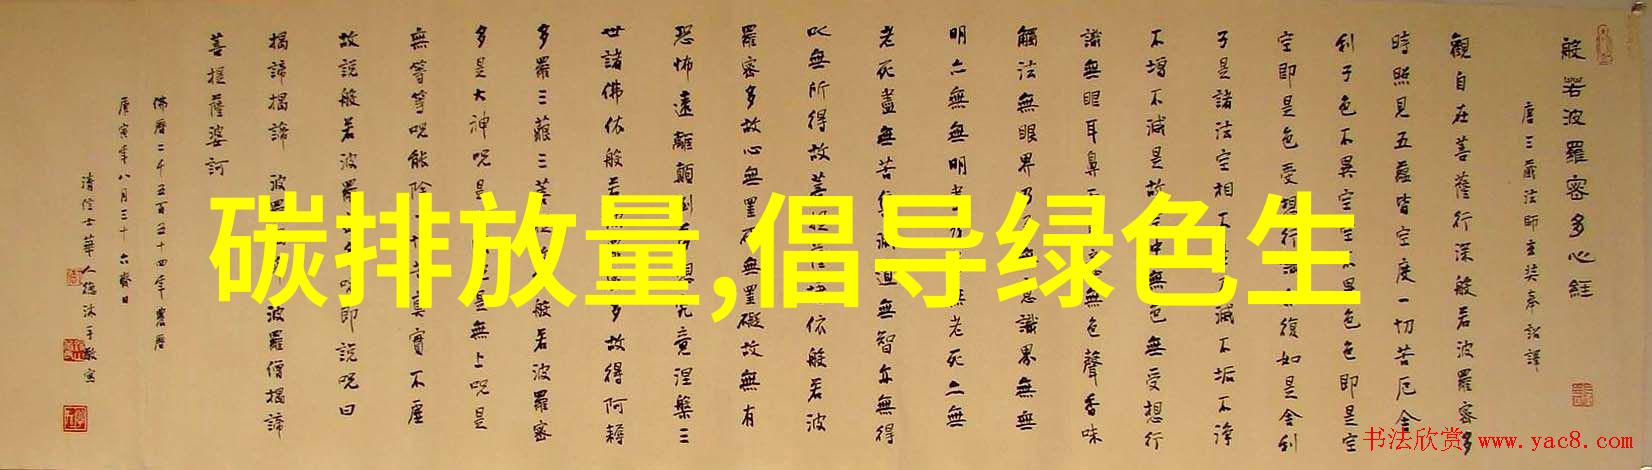 碳排放量,倡导绿色生
般若波羅密多心經
唐三藏法師玄奘奉詔譯
觀自在菩薩行深般若波羅密多
時照見五蘊皆空度一切苦厄舍
利子色不異空空不異色色即是空
空即是色受想行識亦復如是舍利
子是諸法空相不生不滅不垢不淨
不增不減是故空中無色無受想行
識無眼耳鼻舌身意無色聲香味
觸法無眼界乃至無意識界無無
明亦無無明盡乃至無老死亦無
老死盡無苦集滅道無智亦無得
以無所得故菩提薩埵依般若波
羅密多故心無罣礙無罣礙故無有
恐怖遠離顛倒夢想究竟涅槃三
世諸佛依般若波羅密多故得阿耨
多羅三藐三菩提故知般若波羅密
多是大神呪是大明呪是無上呪是
無等等呪能除一切苦真實不虛
故說般若波羅密多呪即說呪曰
揭諦揭諦 波羅揭諦 波羅僧揭諦
菩提薩婆訶
佛曆二千五百五十四年農曆
庚寅年八月三十六齋日
清信士華人德沐手敬寫
书法欣赏 www.yac8.com